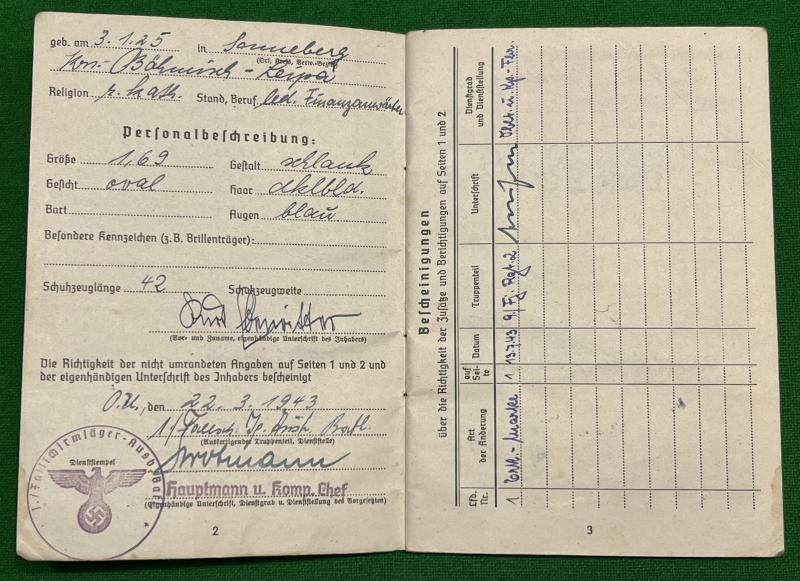 geb. am 3.1.25 in Sonneberg
(Ort, Kreis, Verw.-Bezirk)
Krs. Böhmisch-Leipa
Religion r. kath. Stand, Beruf led. Finanzanwärter
Personalbeschreibung:
Größe 1,69 Gestalt schlank
Gesicht oval Haar dklbld.
Bart Augen blau
Besondere Kennzeichen (z.B. Brillenträger):
Schuhzeuglänge 42 Schuhzeugweite
Kurt
(Vor- und Zuname, eigenhändige Unterschrift des Inhabers)
Die Richtigkeit der nicht umrandeten Angaben auf Seiten 1 und 2 und
der eigenhändigen Unterschrift des Inhabers bescheinigt
O.U., den 22.3.1943
1./Fallsch. Jg. Batl.
(Ausfertigender Truppenteil, Dienststelle)
Dienststempel
Hauptmann u. Komp. Chef
(Eigenhändige Unterschrift, Dienstgrad u. Dienststellung des Vorgesetzten)
1./Fallschirmjäger-Ausb.
2
Bescheinigungen
über die Richtigkeit der Zusätze und Berichtigungen auf Seiten 1 und 2
Lfd. Nr. Art der Änderung auf Seite Datum Truppenteil Unterschrift Dienstgrad und Dienststellung
1 Erk.-Marke 1 13.7.43 9./Fj. Rgt. 2 Oblt. u. Kp.-Fhr.
3